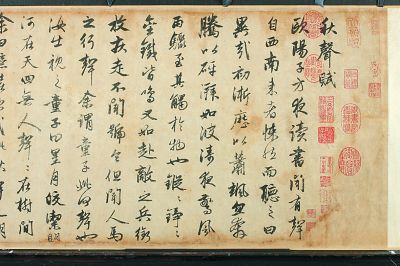 秋聲賦
歐陽子方夜讀書聞有聲
自西南來者悚然而聽之曰
異哉初淅瀝以蕭颯忽奔
騰以砰湃如波濤夜驚風
雨驟至其觸於物也鏦〻錚〻
金鐵皆鳴又如赴敵之兵銜
枚疾走不聞號令但聞人馬
之行聲余謂童子此何聲也
汝出視之童子曰星月皎潔明
河在天四無人聲〻在樹間
余曰噫嘻悲哉此秋聲